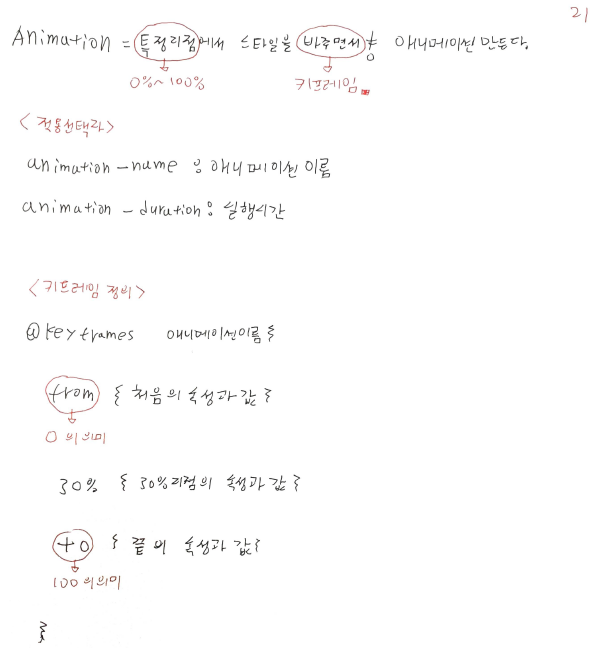 21
Animation = 특정지점에서 스타일을 바꾸면서 애니메이션 만든다.
0%~100% 키프레임
<적용선택자>
animation-name : 애니메이션 이름
animation-duration : 실행시간
<키프레임 정의>
@keyframes 애니메이션이름 {
from { 처음의 속성과 값 }
0 의 의미
30% { 30%지점의 속성과 값 }
to { 끝의 속성과 값 }
100 의 의미
}